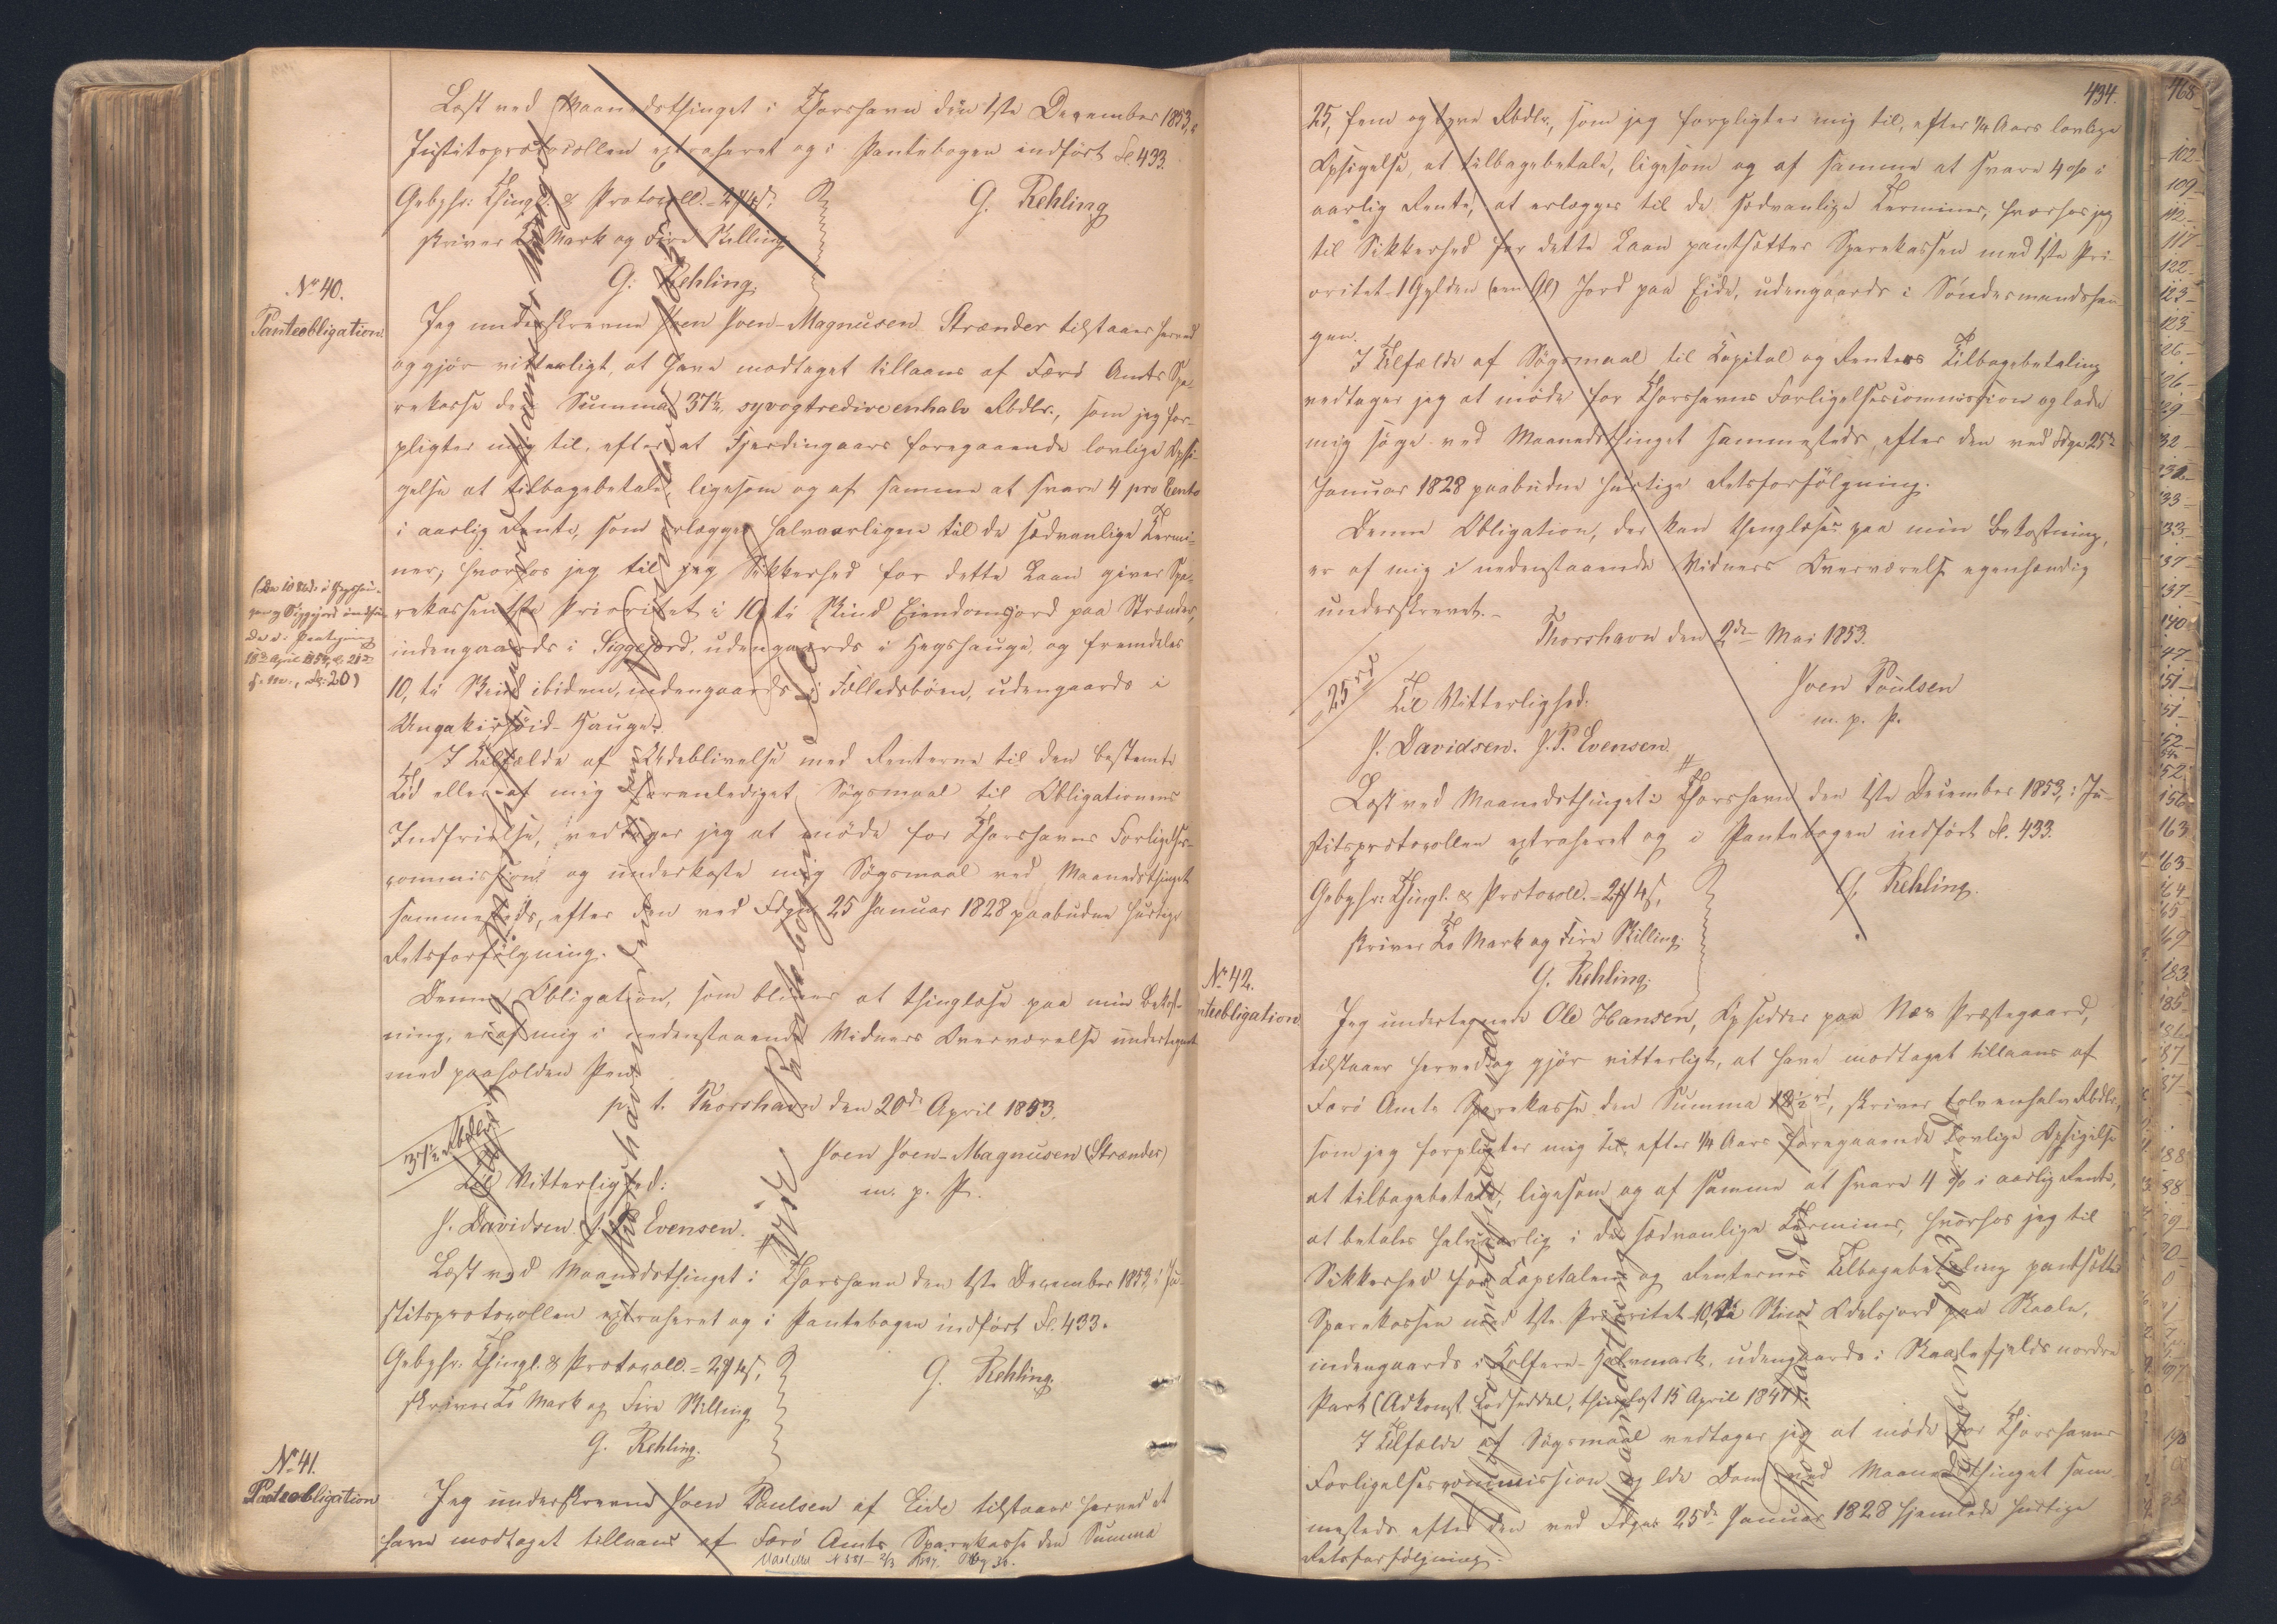 Læst ved Maanedsthinget i Thorshavn den 1ste December 1853, i
Justitsprotocollen extraheret og i Pantebogen indført Fol. 433.
Gebyhr: Thingl. & Protocoll. = 2 # 4 s,
skriver To Mark og Fire Skilling
G. Rehling
G. Rehling.
No 40.
Panteobligation.
Jeg underskrevne Joen Joen-Magnusen Strænder tilstaaer herved
og gjør vitterligt, at have modtaget tillaans af Færø Amts Spa-
rekasse den Summa 37½, syvogtredive enhalv Rbdlr., som jeg for-
pligter mig til, efter at Fjerdingaars foregaaende lovlige Opsi-
gelse at tilbagebetale, ligesom og af samme at svare 4 pro Cento
i aarlig Rente, som erlægges halvaarligen til de sædvanlige Termi-
ner; hvorhos jeg til Sikkerhed for dette Laan giver Spa-
rekassen 1ste Prioritet i 10 ti Skind Eiendomsjord paa Strænder,
indengaards i Siggejord, udengaards i Hegshauge, og fremdeles
10, ti Skind ibidem, indengaards i Tolledsbøen, udengaards i
Ungakirshøid-Hauge.
18de April 1854, 21de
I Tilfælde af Udeblivelse med Renterne til den bestemte
Tid eller af mig foranlediget Søgsmaal til Obligationens
Indfrielse, vedtager jeg at møde for Thorshavns Forligelses-
commission og underkaste mig Søgsmaal ved Maanedsthinget
sammesteds, efter den ved Fdgn. 25 Januar 1828 paabudne hurtige
Retsforfølgning.
Denne Obligation, som bliver at thinglæse paa min Bekost-
ning, er af mig i nedenstaaende Vidners Overværelse undertegnet
med paaholden Pen.
p. t. Thorshavn den 20de April 1853.
37½ Rbdlr.
Joen Joen-Magnusen (Strænder)
m. p. P.
Til Vitterlighed:
J. Davidsen. J. P. Evensen.
Læst ved Maanedsthinget i Thorshavn den 1ste December 1853, i Ju-
stitsprotocollen extraheret og i Pantebogen indført Fol. 433.
Gebyhr. Thingl. & Protocoll. = 2 # 4 s,
skriver To Mark og Fire Skilling
G. Rehling.
G. Rehling.
No 41.
Panteobligation
Jeg underskrevne Joen Paulsen af Eide tilstaaer herved at
have modtaget tillaans af Færø Amts Sparekasse den Summa
434.
25, fem og tyve Rbdlr., som jeg forpligter mig til, efter ¼ Aars lovlige
Opsigelse, at tilbagebetale, ligesom og af samme at svare 4 o/o i
aarlig Rente, at erlægges til de sædvanlige Terminer, hvorhos jeg
til Sikkerhed for dette Laan pantsætter Sparekassen med 1ste Pri-
oritet 1 Gylden (een Gl) Jord paa Eide, udengaards i Søndermandshau-
gen.
I Tilfælde af Søgsmaal til Kapital og Renters Tilbagebetaling
vedtager jeg at møde for Thorshavns Forligelsescommission og lade
mig søge ved Maanedsthinget sammesteds, efter den ved Fdgn 25de
Januar 1828 paabudne hurtige Retsforfølgning.
Denne Obligation, der kan thinglæses paa min Bekostning,
er af mig i nedenstaaende Vidners Overværelse egenhændig
underskrevet.
Thorshavn den 2de Mai 1853.
25 rd
Joen Poulsen
m. p. P.
Til Vitterlighed:
J. Davidsen. J. P. Evensen.
Læst ved Maanedsthinget i Thorshavn den 1ste December 1853, i Ju-
stitsprotocollen extraheret og i Pantebogen indført Fol. 433.
Gebyhr: Thingl. & Protocoll. = 2 # 4 s,
skriver To Mark og Fire Skilling.
G. Rehling.
G. Rehling.
No 42.
nteobligation
Jeg undertegnede Ole Hansen, Opsidder paa Næs Præstegaard,
tilstaaer herved og gjør vitterligt, at have modtaget tillaans af
Færø Amts Sparekasse den Summa 12½ rd, skriver tolv enhalv Rbdlr,
som jeg forpligter mig til, efter ¼ Aars foregaaende lovlige Opsigelse
at tilbagebetale, ligesom og af samme at svare 4 o/o i aarlig Rente,
at betales halvaarlig i de sædvanlige Terminer, hvorhos jeg til
Sikkerhed for Capitalens og Renternes Tilbagebetaling pantsætter
Sparekassen med 1ste Prioritet 10, ti Skind Odelsjord paa Skaale,
indengaards i udengaards i Skaalefjelds nordre
Part (Adkomst Lodseddel, thinglæst 15 April 1847).
I Tilfælde af Søgsmaal vedtager jeg at møde for Thorshavns
Forligelsescommission og lide Dom ved Maanedsthinget sam-
mesteds efter den ved Fdgn. 25de Januar 1828 hjemlede hurtige
Retsforfølgning.